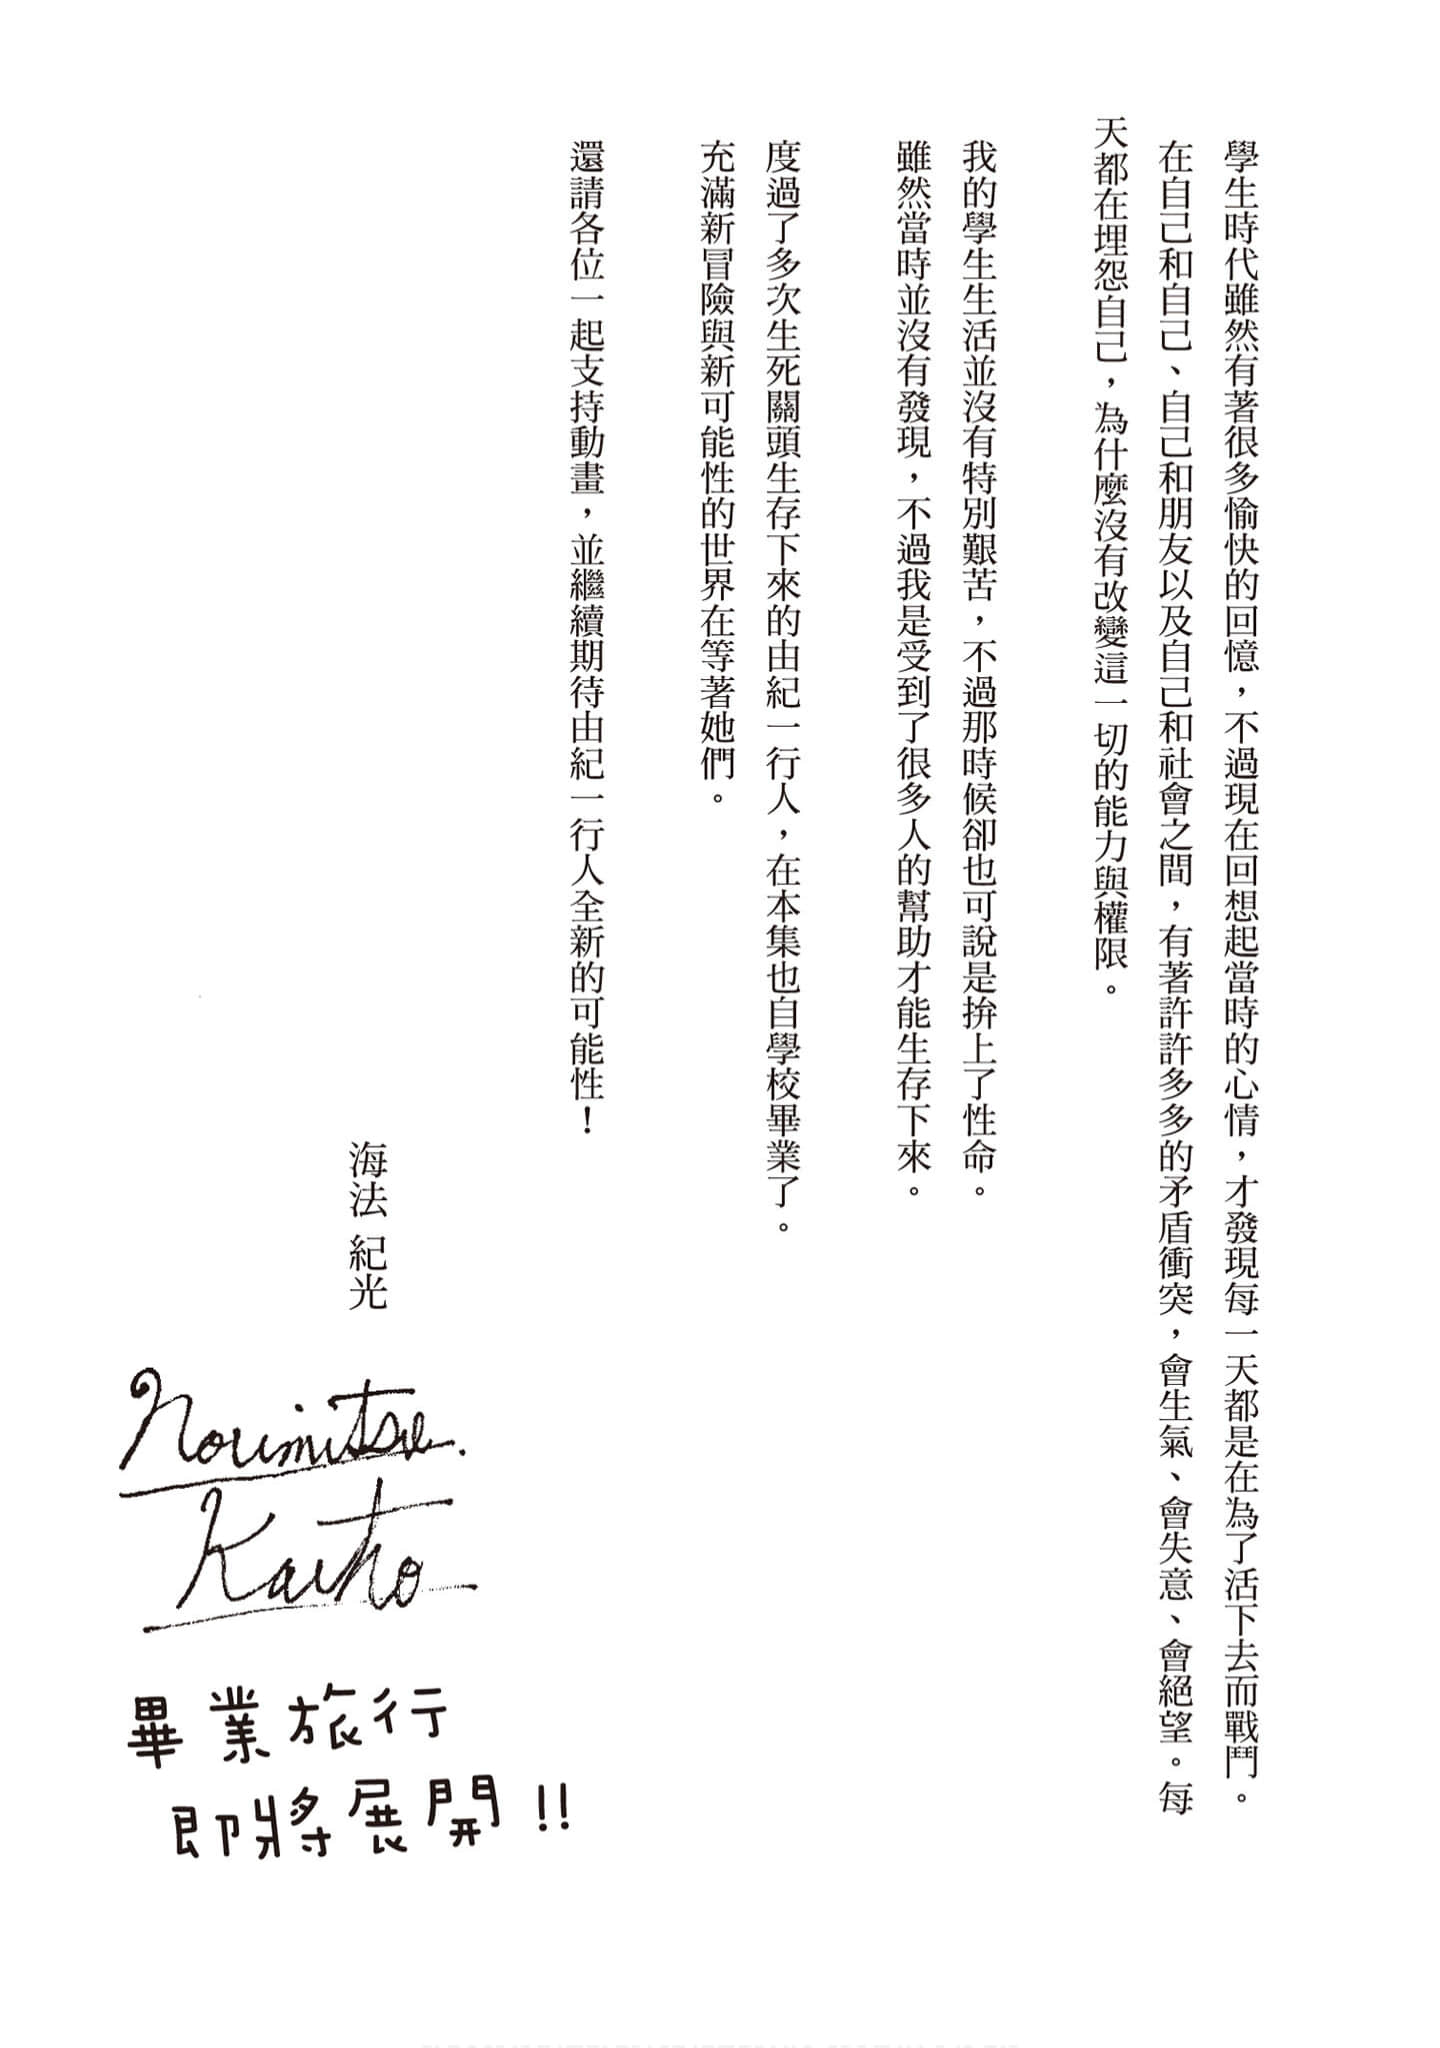 學生時代雖然有著很多愉快的回憶，不過現在回想起當時的心情，才發現每一天都是在為了活下去而戰鬥。
在自己和自己、自己和朋友以及自己和社會之間，有著許許多多的矛盾衝突，會生氣、會失意、會絕望。每
天都在埋怨自己，為什麼沒有改變這一切的能力與權限。
我的學生生活並沒有特別艱苦，不過那時候卻也可說是拚上了性命。
雖然當時並沒有發現，不過我是受到了很多人的幫助才能生存下來。
度過了多次生死關頭生存下來的由紀一行人，在本集也自學校畢業了。
充滿新冒險與新可能性的世界在等著她們。
還請各位一起支持動畫，並繼續期待由紀一行人全新的可能性！
海法 紀光
Norimitsu.
Kaiho
畢業旅行
即將展開!!